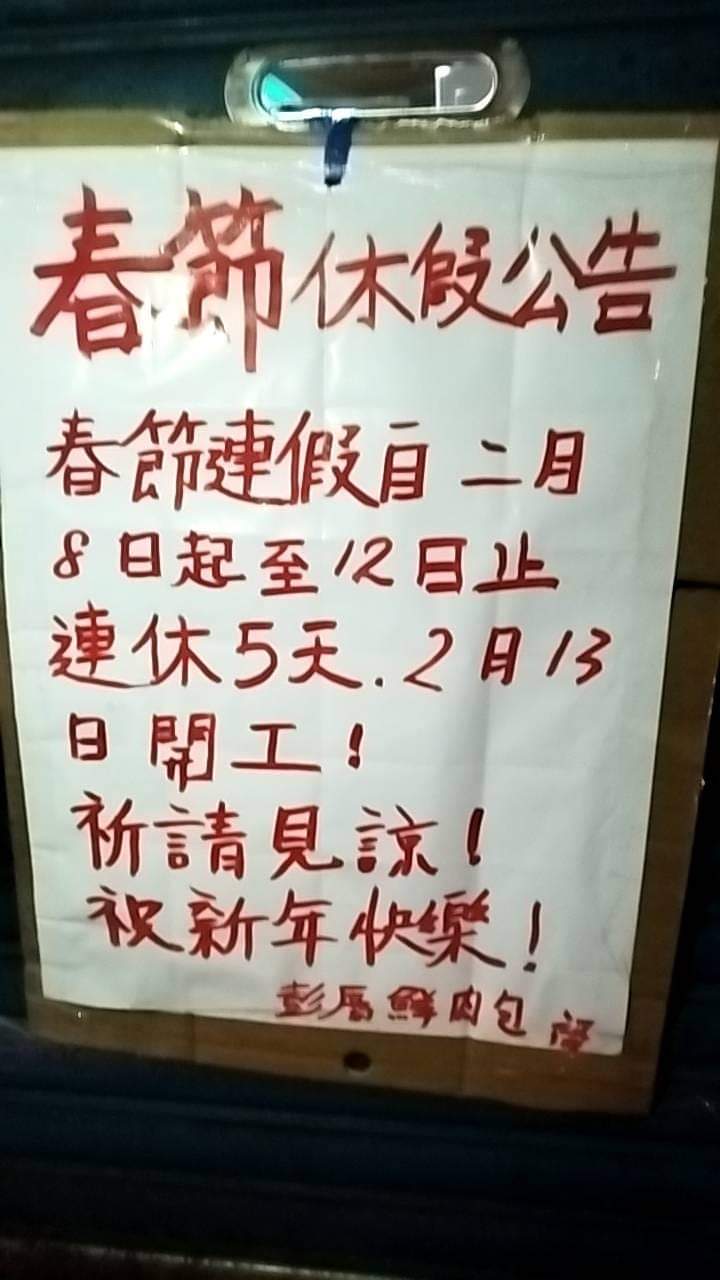 春節休假公告
春節連假自二月
8日起至12日止
連休5天.2月13
日開工!
祈請見諒!
祝新年快樂!
彭厝鮮肉包